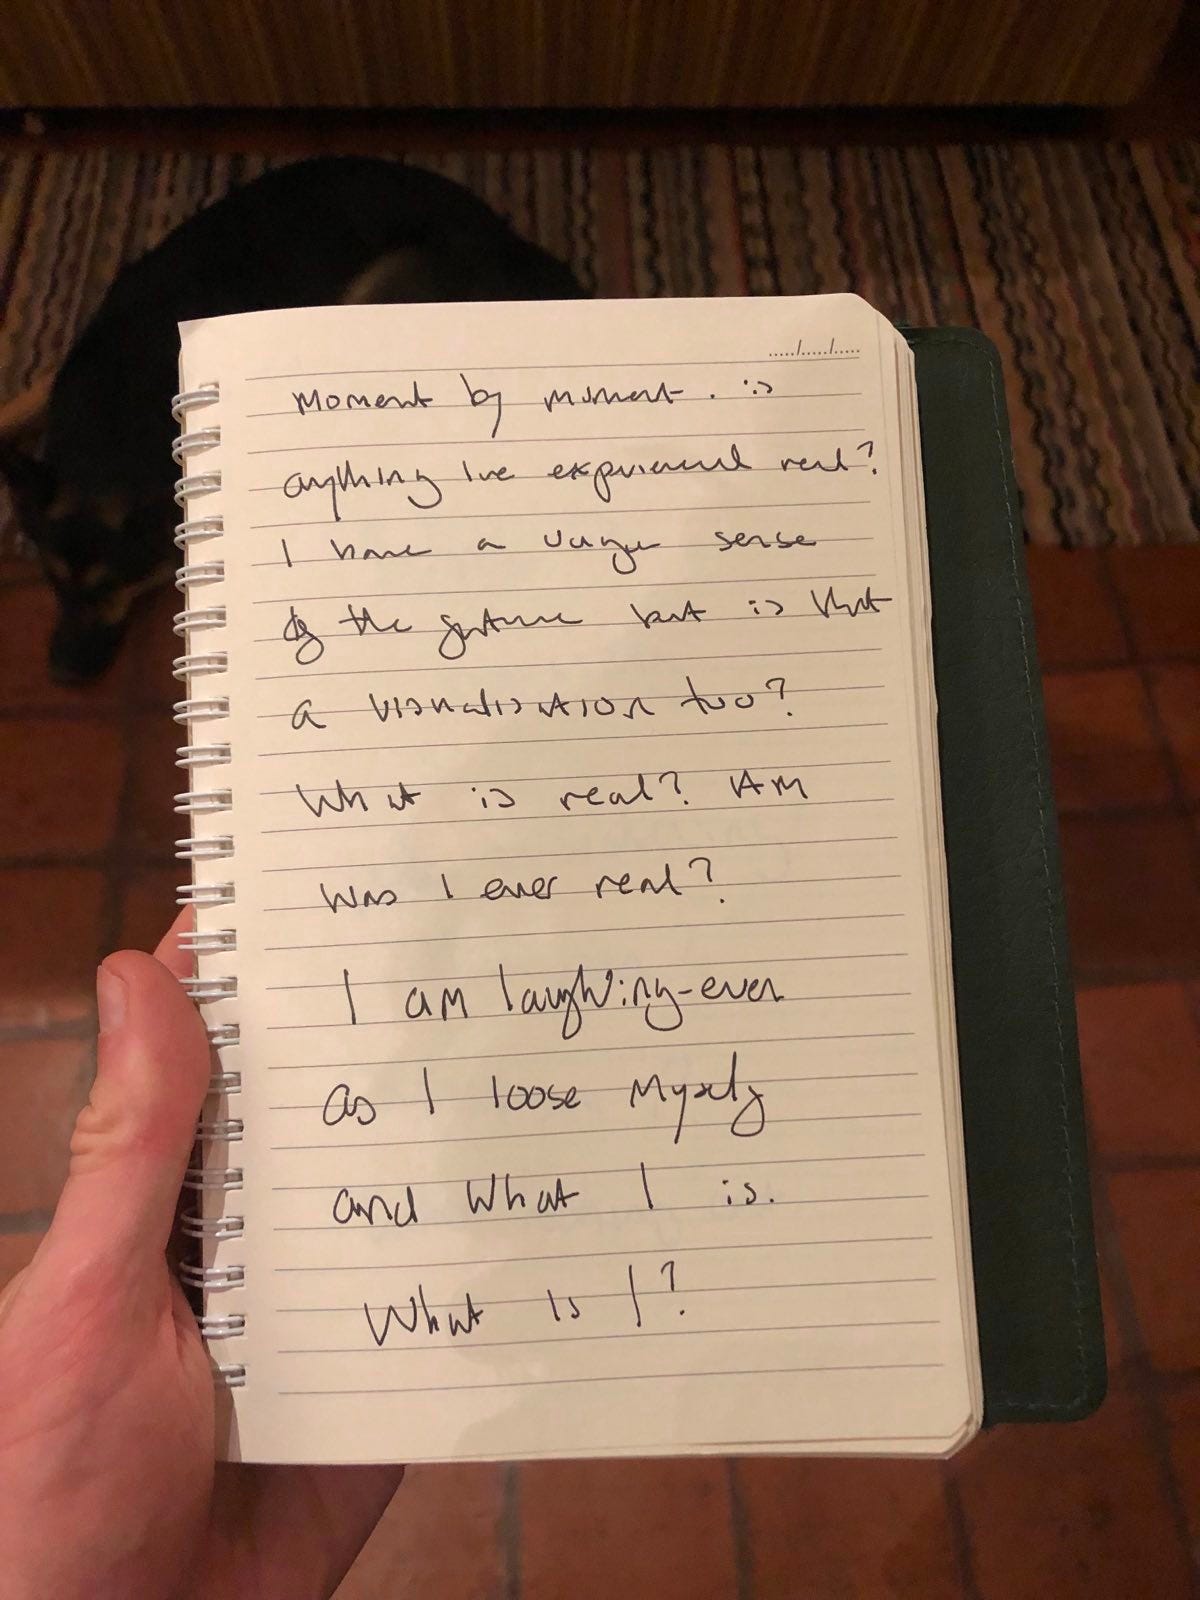 moment by moment. is
anything Ive experienced real?
I have a vague sense
of the future but is that
a visualisation too?
What is real? AM
Was I ever real?
I am laughing-even
as I loose Myself
and What I is.
What is I?